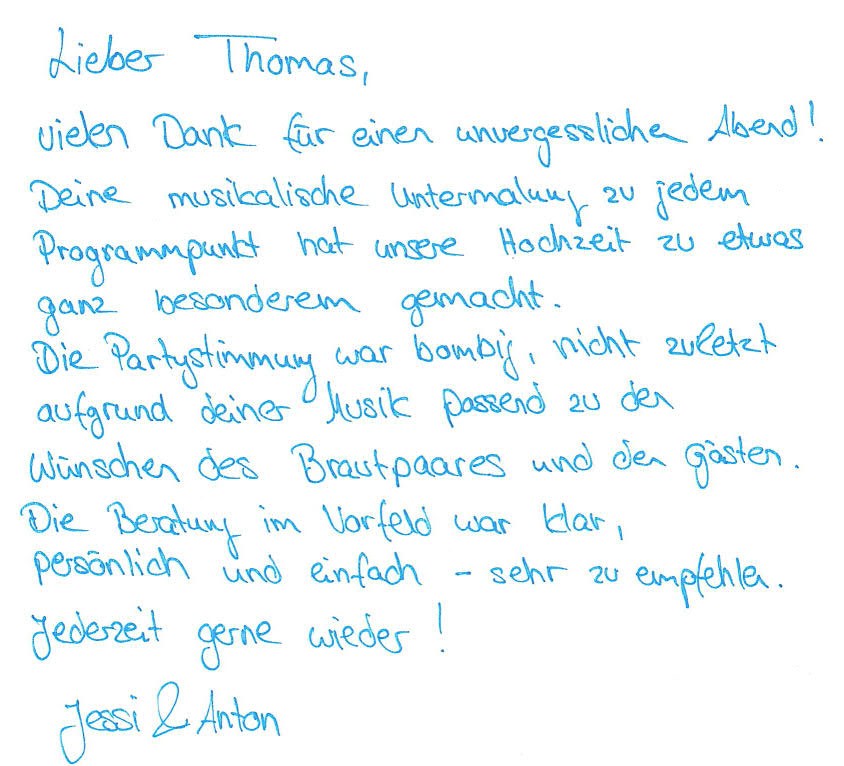 Lieber Thomas,
vielen Dank für einen unvergesslichen Abend!
Deine musikalische Untermalung zu jedem
Programmpunkt hat unsere Hochzeit zu etwas
ganz besonderem gemacht.
Die Partystimmung war bombig, nicht zuletzt
aufgrund deiner Musik passend zu den
Wünschen des Brautpaares und den Gästen.
Die Beratung im Vorfeld war klar,
persönlich und einfach - sehr zu empfehlen.
Jederzeit gerne wieder!
Jessi & Anton